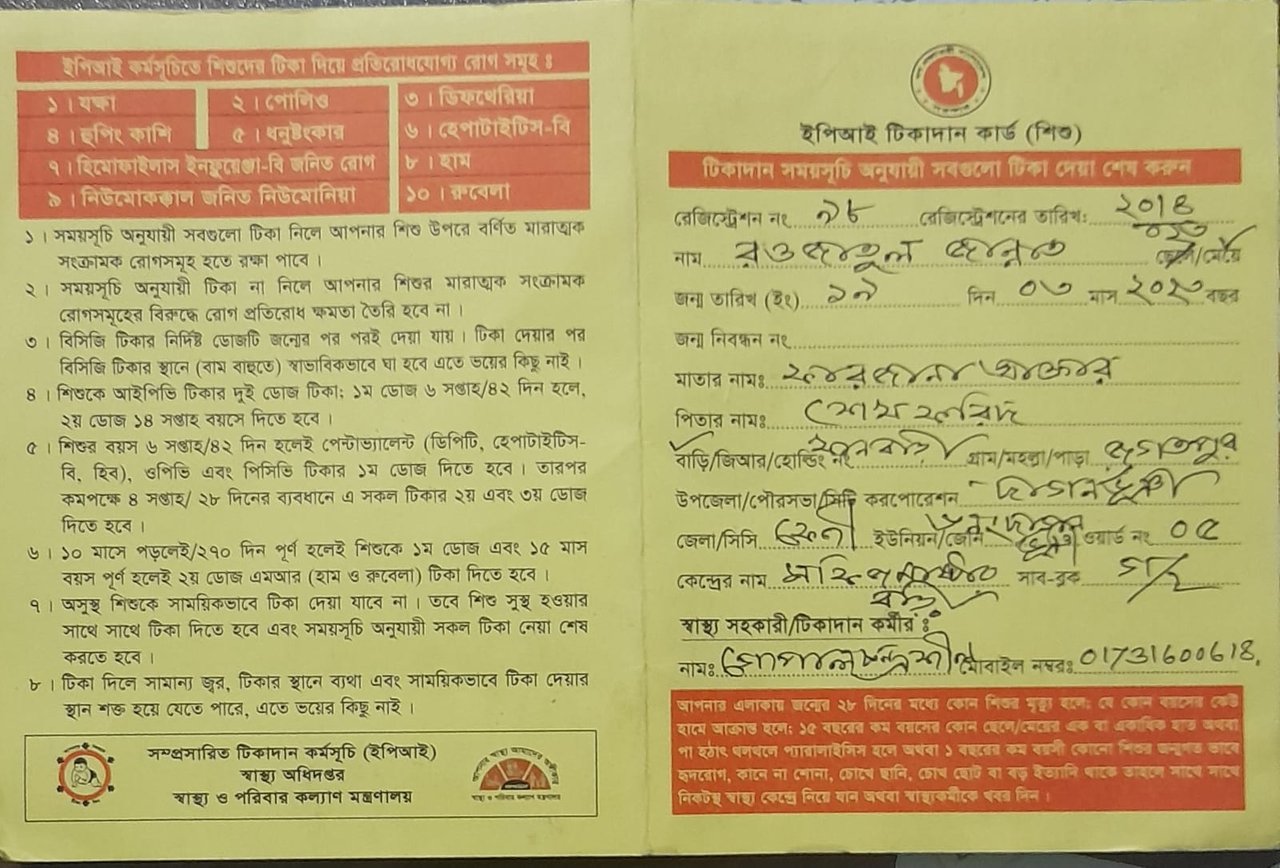 ইপিআই কর্মসূচিতে শিশুদের টিকা দিয়ে প্রতিরোধযোগ্য রোগ সমূহ ঃ
১। যক্ষা
২। পোলিও
৩। ডিফথেরিয়া
৪। হুপিং কাশি
৫। ধনুষ্টংকার
৬। হেপাটাইটিস-বি
৭। হিমোফাইলাস ইনফ্লুয়েঞ্জা-বি জনিত রোগ
৮। হাম
৯। নিউমোকক্কাল জনিত নিউমোনিয়া
১০। রুবেলা
১। সময়সূচি অনুযায়ী সবগুলো টিকা নিলে আপনার শিশু উপরে বর্ণিত মারাত্মক
সংক্রামক রোগসমূহ হতে রক্ষা পাবে।
২। সময়সূচি অনুযায়ী টিকা না নিলে আপনার শিশুর মারাত্মক সংক্রামক
রোগসমূহের বিরুদ্ধে রোগ প্রতিরোধ ক্ষমতা তৈরি হবে না।
৩। বিসিজি টিকার নির্দিষ্ট ডোজটি জন্মের পর পরই দেয়া যায়। টিকা দেয়ার পর
বিসিজি টিকার স্থানে (বাম বাহুতে) স্বাভাবিকভাবে ঘা হবে এতে ভয়ের কিছু নাই।
৪। শিশুকে আইপিভি টিকার দুই ডোজ টিকা; ১ম ডোজ ৬ সপ্তাহ/৪২ দিন হলে,
২য় ডোজ ১৪ সপ্তাহ বয়সে দিতে হবে।
৫। শিশুর বয়স ৬ সপ্তাহ/৪২ দিন হলেই পেন্টাভ্যালেন্ট (ডিপিটি, হেপাটাইটিস-
বি, হিব), ওপিভি এবং পিসিভি টিকার ১ম ডোজ দিতে হবে। তারপর
কমপক্ষে ৪ সপ্তাহ/ ২৮ দিনের ব্যবধানে এ সকল টিকার ২য় এবং ৩য় ডোজ
দিতে হবে।
৬। ১০ মাসে পড়লেই/২৭০ দিন পূর্ণ হলেই শিশুকে ১ম ডোজ এবং ১৫ মাস
বয়স পূর্ণ হলেই ২য় ডোজ এমআর (হাম ও রুবেলা) টিকা দিতে হবে।
৭। অসুস্থ শিশুকে সাময়িকভাবে টিকা দেয়া যাবে না। তবে শিশু সুস্থ হওয়ার
সাথে সাথে টিকা দিতে হবে এবং সময়সূচি অনুযায়ী সকল টিকা নেয়া শেষ
করতে হবে।
৮। টিকা দিলে সামান্য জ্বর, টিকার স্থানে ব্যথা এবং সাময়িকভাবে টিকা দেয়ার
স্থান শক্ত হয়ে যেতে পারে, এতে ভয়ের কিছু নাই।
সম্প্রসারিত টিকাদান কর্মসূচি (ইপিআই)
স্বাস্থ্য অধিদপ্তর
স্বাস্থ্য ও পরিবার কল্যাণ মন্ত্রণালয়
ইপিআই টিকাদান কার্ড (শিশু)
টিকাদান সময়সূচি অনুযায়ী সবগুলো টিকা দেয়া শেষ করুন
রেজিস্ট্রেশন নং ৯৮ রেজিস্ট্রেশনের তারিখ:
নাম রওজাতুল জান্নাত ছেলে/মেয়ে
জন্ম তারিখ (ইং) ১৯ দিন ০৩ মাস ২০২০ বছর
জন্ম নিবন্ধন নং
মাতার নামঃ ফারজানা আক্তার
পিতার নামঃ শেখ ফরিদ
বাড়ি/জিআর/হোল্ডিং নং গ্রাম/মহল্লা/পাড়া জগতপুর
উপজেলা/পৌরসভা/সিটি করপোরেশন দাগনভূঞা
জেলা/সিসি ফেনী ইউনিয়ন/জোন ওয়ার্ড নং ০৫
কেন্দ্রের নাম বাড়ি সাব-ব্লক
স্বাস্থ্য সহকারী/টিকাদান কর্মীর ঃ
নামঃ গোপাল চন্দ্র শীল মোবাইল নম্বরঃ 01731600618
আপনার এলাকায় জন্মের ২৮ দিনের মধ্যে কোন শিশুর মৃত্যু হলে; যে কোন বয়সের কেউ
হামে আক্রান্ত হলে; ১৫ বছরের কম বয়সের কোন ছেলে/মেয়ের এক বা একাধিক হাত অথবা
পা হঠাৎ থলথলে প্যারালাইসিস হলে অথবা ১ বছরের কম বয়সী কোনো শিশুর জন্মগত ভাবে
হৃদরোগ, কানে না শোনা, চোখে ছানি, চোখ ছোট বা বড় ইত্যাদি থাকে তাহলে সাথে সাথে
নিকটস্থ স্বাস্থ্য কেন্দ্রে নিয়ে যান অথবা স্বাস্থ্যকর্মীকে খবর দিন।